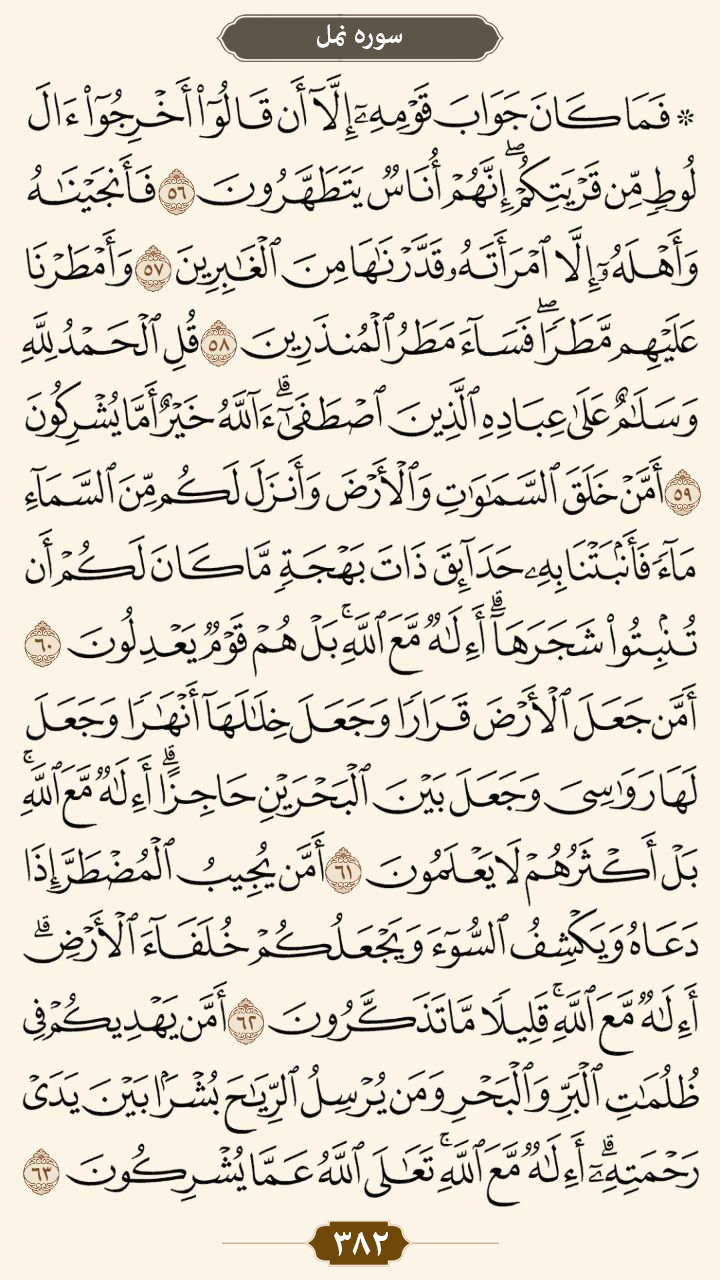 سوره نمل
۞ فَمَا كَانَ جَوَابَ قَوْمِهِۦٓ إِلَّآ أَن قَالُوٓا۟ أَخْرِجُوٓا۟ ءَالَ
لُوطٍۢ مِّن قَرْيَتِكُمْ ۖ إِنَّهُمْ أُنَاسٌۭ يَتَطَهَّرُونَ ٥٦ فَأَنجَيْنَـٰهُ
وَأَهْلَهُۥٓ إِلَّا ٱمْرَأَتَهُۥ قَدَّرْنَـٰهَا مِنَ ٱلْغَـٰبِرِينَ ٥٧ وَأَمْطَرْنَا
عَلَيْهِم مَّطَرًۭا ۖ فَسَآءَ مَطَرُ ٱلْمُنذَرِينَ ٥٨ قُلِ ٱلْحَمْدُ لِلَّهِ
وَسَلَـٰمٌ عَلَىٰ عِبَادِهِ ٱلَّذِينَ ٱصْطَفَىٰٓ ۗ ءَآللَّهُ خَيْرٌ أَمَّا يُشْرِكُونَ
٥٩ أَمَّنْ خَلَقَ ٱلسَّمَـٰوَٰتِ وَٱلْأَرْضَ وَأَنزَلَ لَكُم مِّنَ ٱلسَّمَآءِ
مَآءًۭ فَأَنۢبَتْنَا بِهِۦ حَدَآئِقَ ذَاتَ بَهْجَةٍۢ مَّا كَانَ لَكُمْ أَن
تُنۢبِتُوا۟ شَجَرَهَآ ۗ أَءِلَـٰهٌۭ مَّعَ ٱللَّهِ ۚ بَلْ هُمْ قَوْمٌۭ يَعْدِلُونَ ٦٠
أَمَّن جَعَلَ ٱلْأَرْضَ قَرَارًۭا وَجَعَلَ خِلَـٰلَهَآ أَنْهَـٰرًۭا وَجَعَلَ
لَهَا رَوَٰسِىَ وَجَعَلَ بَيْنَ ٱلْبَحْرَيْنِ حَاجِزًا ۗ أَءِلَـٰهٌۭ مَّعَ ٱللَّهِ ۚ
بَلْ أَكْثَرُهُمْ لَا يَعْلَمُونَ ٦١ أَمَّن يُجِيبُ ٱلْمُضْطَرَّ إِذَا
دَعَاهُ وَيَكْشِفُ ٱلسُّوٓءَ وَيَجْعَلُكُمْ خُلَفَآءَ ٱلْأَرْضِ ۗ
أَءِلَـٰهٌۭ مَّعَ ٱللَّهِ ۚ قَلِيلًۭا مَّا تَذَكَّرُونَ ٦٢ أَمَّن يَهْدِيكُمْ فِى
ظُلُمَـٰتِ ٱلْبَرِّ وَٱلْبَحْرِ وَمَن يُرْسِلُ ٱلرِّيَـٰحَ بُشْرًۢا بَيْنَ يَدَىْ
رَحْمَتِهِۦٓ ۗ أَءِلَـٰهٌۭ مَّعَ ٱللَّهِ ۚ تَعَـٰلَى ٱللَّهُ عَمَّا يُشْرِكُونَ ٦٣
٣٨٢